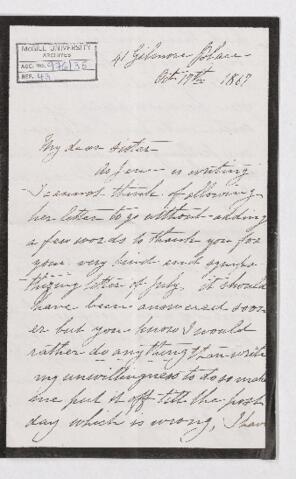 McGILL UNIVERSITY
ARCHIVES
ACC. NO. 976/35
REF. 43
41 Gilmore Place
Oct 17th 1867
My dear Sister
As Jane is writing
I cannot think of allowing
her letter to go without adding
a few words to thank you for
your very kind and sympa-
thizing letter of July, it should
have been answered soon
er but you know I would
rather do anything than write
my unwillingness to do so makes
me put it off till the post
day which is wrong, I have